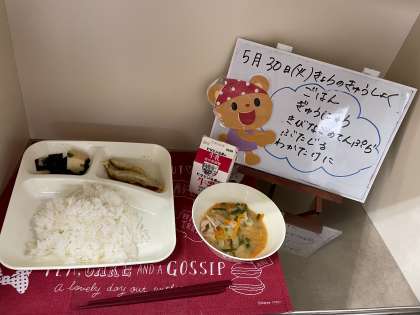 5月30日(火)きょうのきゅうしょく
ごはん
ぎゅうにゅう
きびなごのてんぷら
ぶたじる
わかたけに
TEA, CAKE AND A GOSSIP
A lovely day out